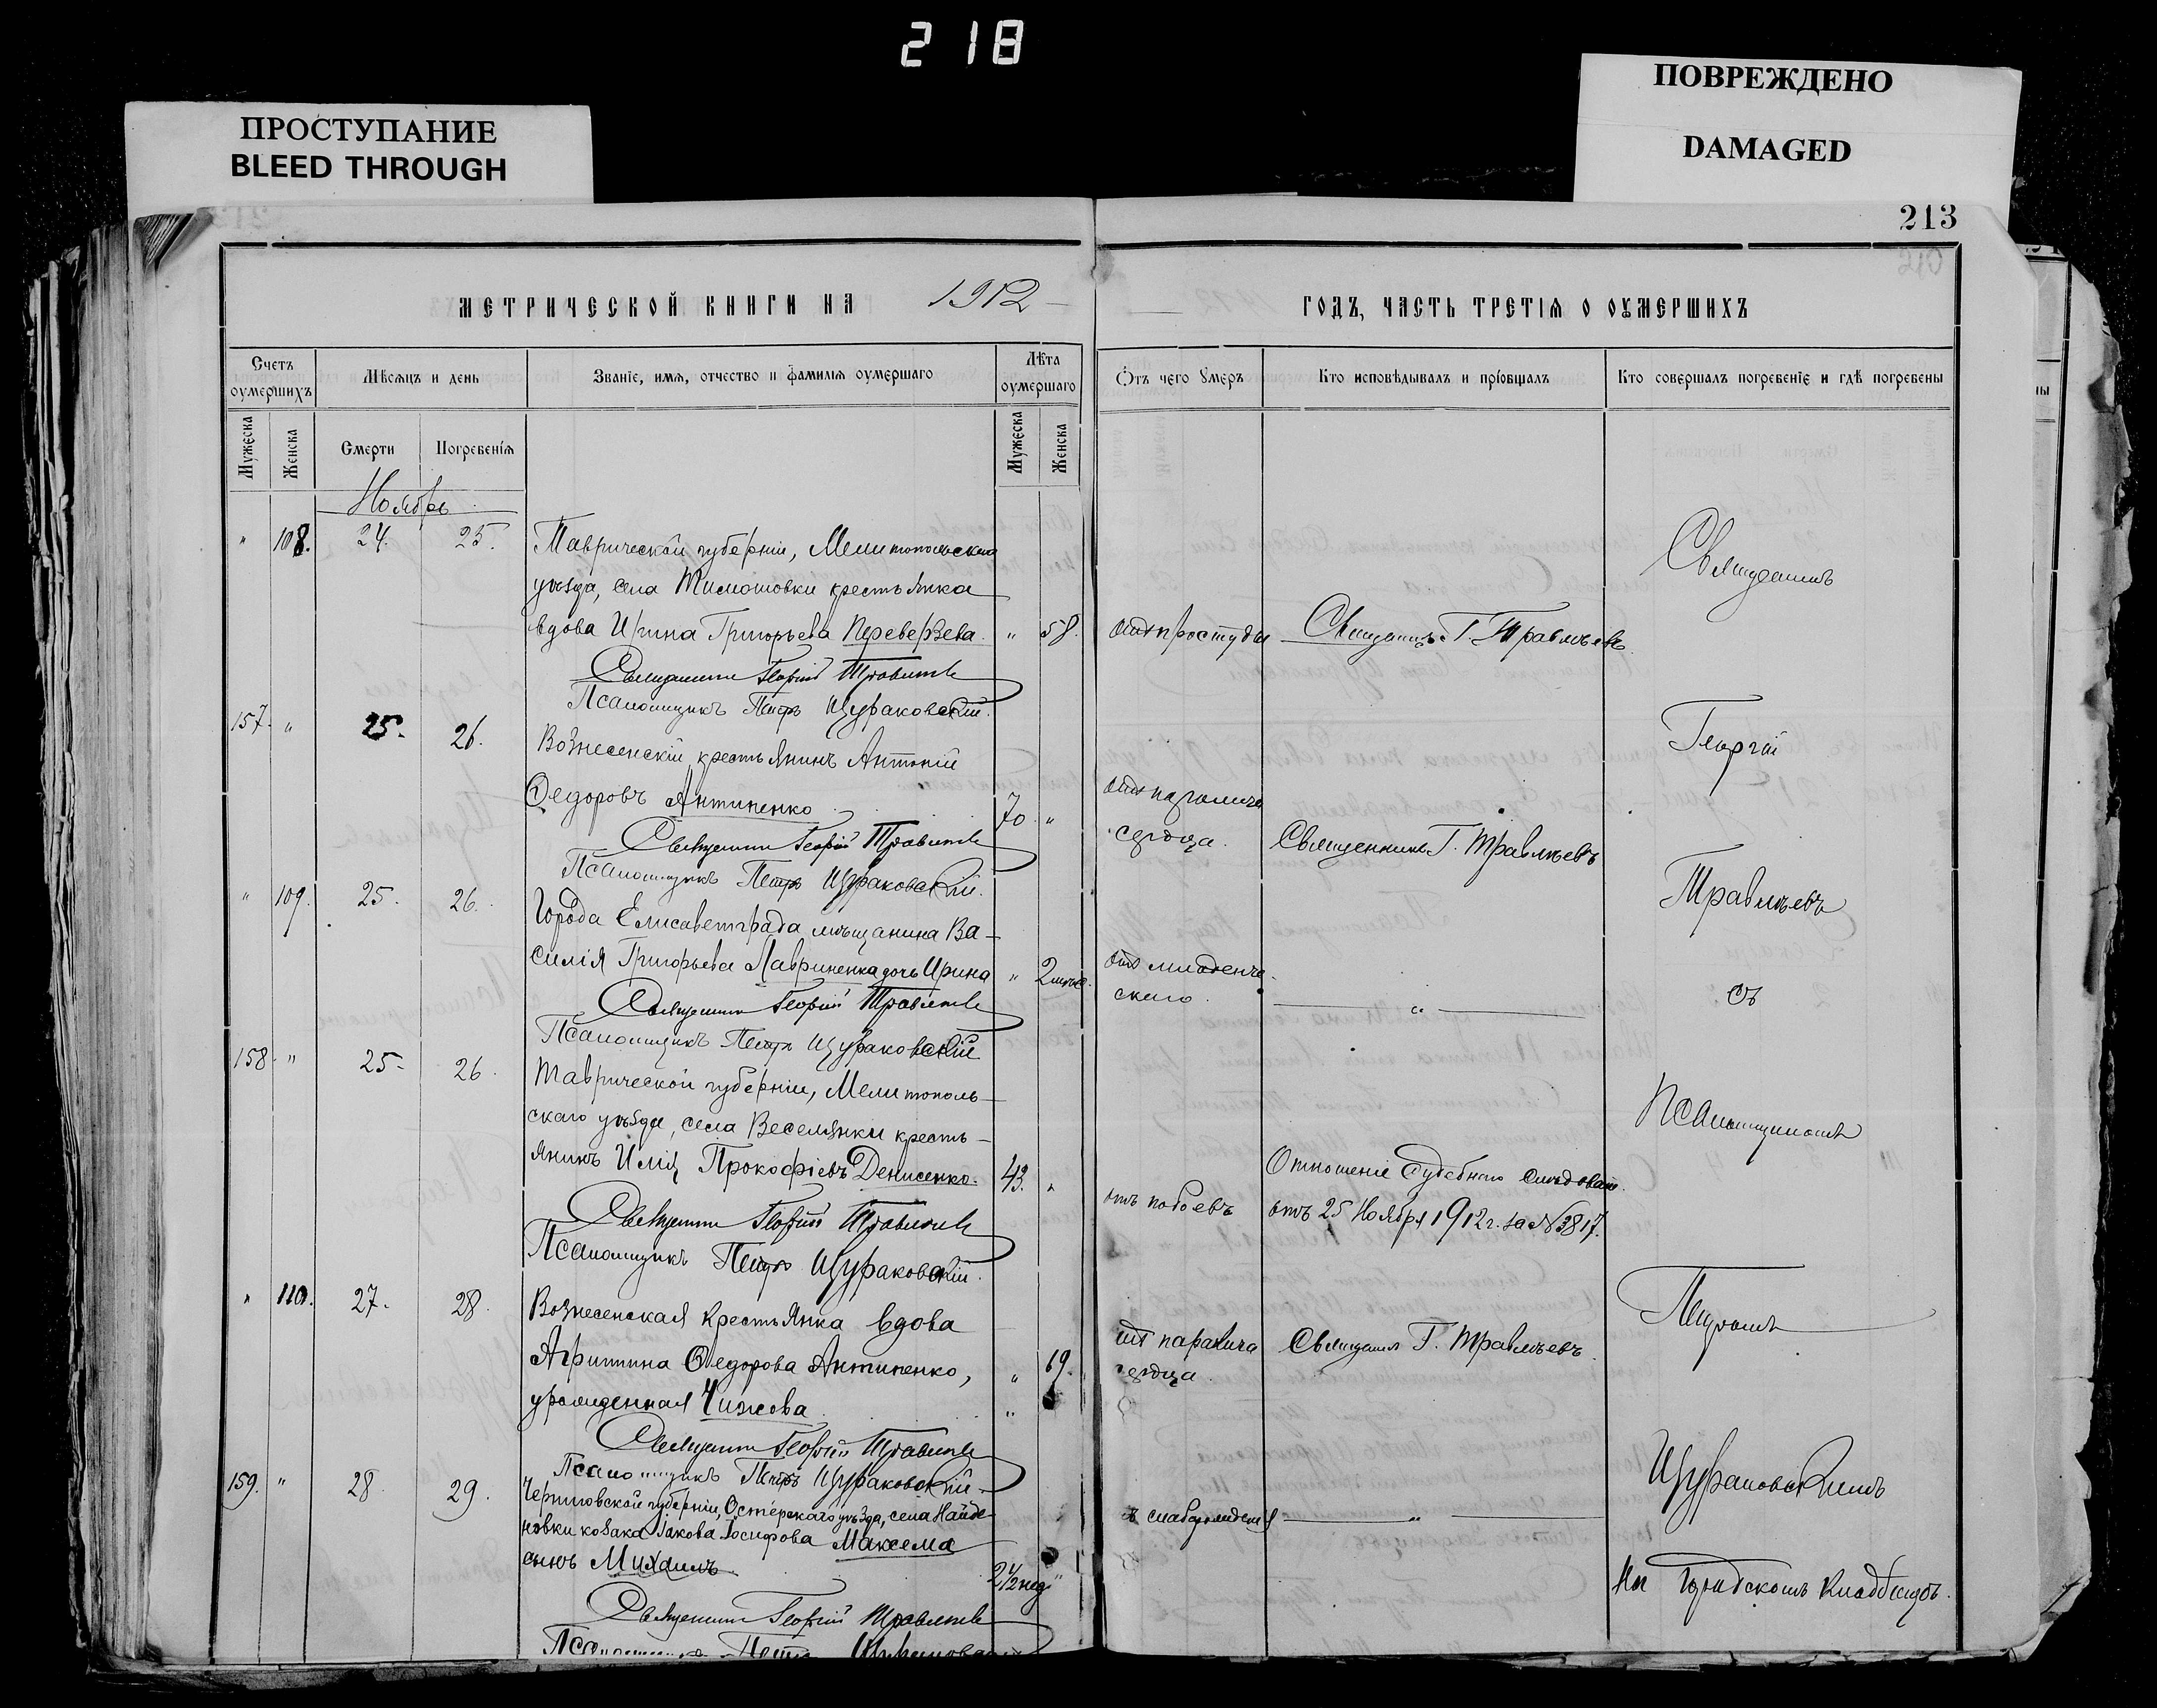 218
ПРОСТУПАНИЕ
BLEED THROUGH
ПОВРЕЖДЕНО
DAMAGED
213
МЕТРИЧЕСКОЙ КНИГИ НА 1912
ГОДЪ, ЧАСТЬ ТРЕТІѦ О ОУМЕРШИХЪ
Счетъ оумершихъ
Мѣсѧцъ и день
Званіе, имѧ, отчество и фамиліѧ оумершаго
Лѣта оумершаго
Ѿтъ чего Умеръ
Кто исповѣдывалъ и пріобщалъ
Кто совершалъ погребеніе и гдѣ погребены
Мужеска
Женска
Смерти
Погребеніѧ
Мужеска
Женска
Ноябрь
" 108. 24. 25. Таврической губерніи, Мелитопольскаго
уѣзда, села Тимошовки крестьянка
вдова Ирина Григорьева Переверзева. " 58. отъ простуды Священникъ Г. Травлѣевъ
Священникъ Георгій Травлѣевъ
Псаломщикъ Петръ Щураковскій.
157. " 25. 26. Вознесенскій крестьянинъ Антоній
Федоровъ Антипенко 70. " отъ паралича
сердца. Священникъ Г. Травлѣевъ
Священникъ Георгій Травлѣевъ
Псаломщикъ Петръ Щураковскій.
" 109. 25. 26. Города Елисаветграда мѣщанина Ва-
силія Григорьева Лавриненка дочь Ирина " отъ младенче-
скаго. "
Священникъ Георгій Травлѣевъ
Псаломщикъ Петръ Щураковскій
158. " 25. 26. Таврической губерніи, Мелитополь-
скаго уѣзда, села Веселянки кресть-
янинъ Илія Прокофіевъ Денисенко. 43. " отъ побоевъ
Отношеніе Судебнаго Слѣдоват.
отъ 25 Ноября 1912 г. за № 3817.
Священникъ Георгій Травлѣевъ
Псаломщикъ Петръ Щураковскій.
" 110. 27. 28. Вознесенская крестьянка вдова
Агрипина Федорова Антипенко, " 69. отъ паралича Священникъ Г. Травлѣевъ.
урожденная Чижова " сердца.
Священникъ Георгій Травлѣевъ
Псаломщикъ Петръ Щураковскій.
159. " 28. 29. Черниговской губерніи, Остерскаго уѣзда, села Найде-
новки козака Іакова Іосифова Максема
сынъ Михаилъ 2 1/2 нед. " "
Священникъ Георгій Травлѣевъ
Псаломщикъ Петръ Щураковскій
Священникъ
Георгій
Травлѣевъ
съ
Псаломщикомъ
Петромъ
Щураковскимъ
На Городскомъ кладбищѣ.